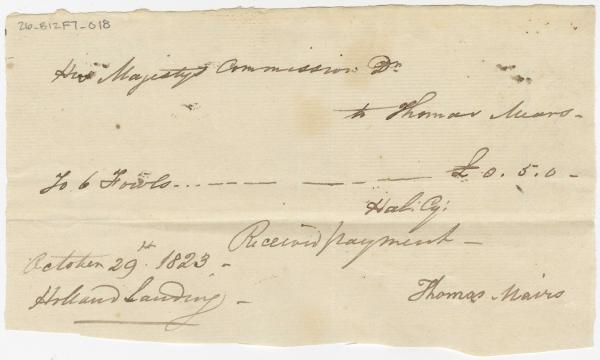 26-B12F7-018
His Majestys Commission Dr
to Thomas Mears -
To 6 Fowls - - - - - - - £ 0. 5. 0 -
Hal: Cy:
Received payment -
October 29th 1823 -
Holland Landing -
Thomas Mairs